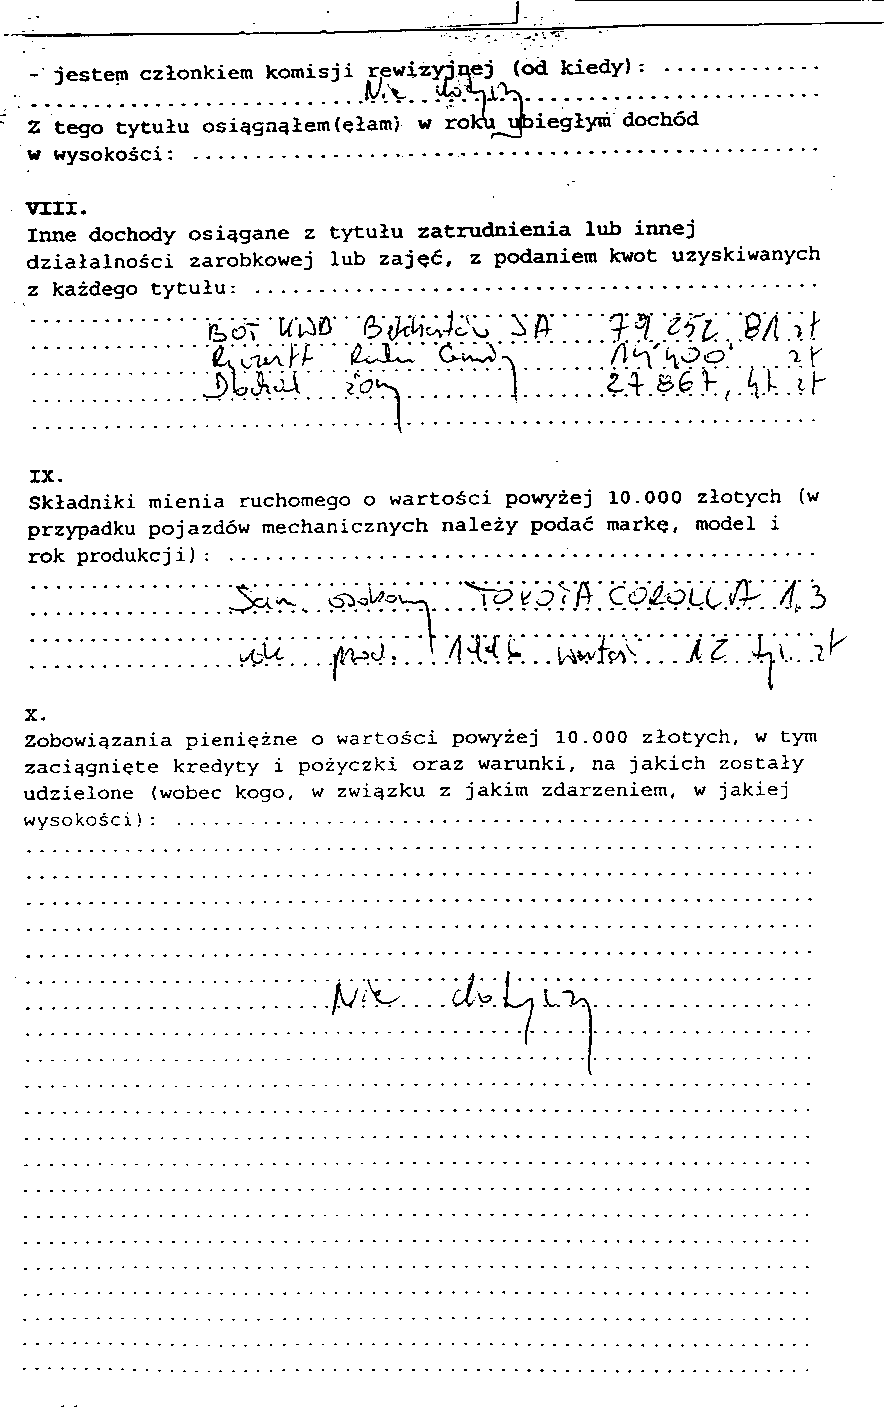 - jestem członkiem komisji rewizyjnej (od kiedy): .............
Nie dotyczy
Z tego tytułu osiągnąłem(ęłam) w roku ubiegłym dochód
w wysokości: ....................................................
VIII.
Inne dochody osiągane z tytułu zatrudnienia lub innej
działalności zarobkowej lub zajęć, z podaniem kwot uzyskiwanych
z każdego tytułu: ...............................................
BOT KWB Bełchatów SA 79 252,81 zł
Ryczałt Rada Gminy 14 400 zł
Dochód żony 27 867, zł
IX.
Składniki mienia ruchomego o wartości powyżej 10.000 złotych (w
przypadku pojazdów mechanicznych należy podać markę, model i
rok produkcji): .................................................
Sam. osobowy TOYOTA COROLLA 1,3
rok prod. 1996 wartość 12 tyś. zł
X.
Zobowiązania pieniężne o wartości powyżej 10.000 złotych, w tym
zaciągnięte kredyty i pożyczki oraz warunki, na jakich zostały
udzielone (wobec kogo, w związku z jakim zdarzeniem, w jakiej
wysokości): .....................................................
Nie dotyczy